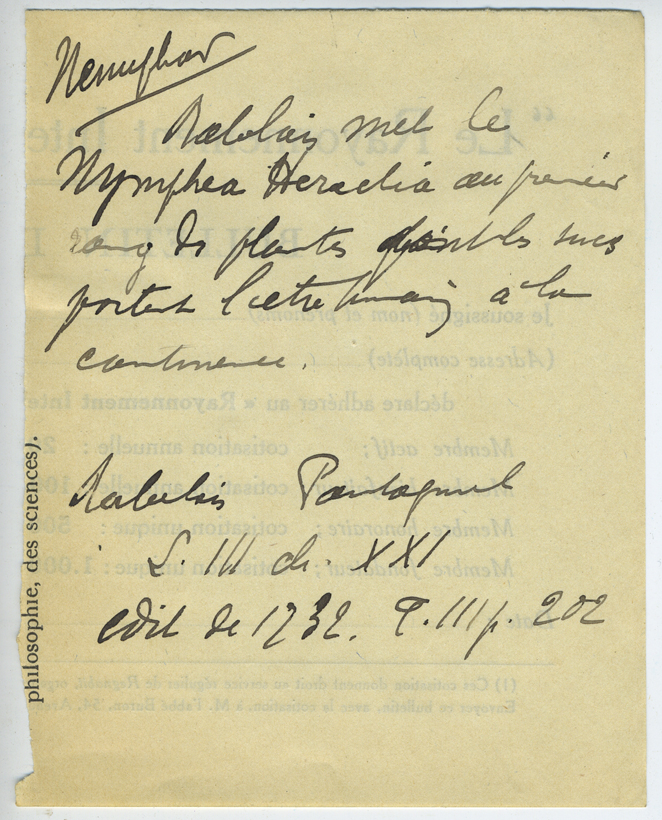 Nenuphar
Rabelais met le
Nymphea Heraclia au premier
rang des plantes sucs
portent l'être humain à la
continence.
Rabelais Pantagruel
L. III ch. XXI
édit de 1732. T. III p. 202
philosophie, des sciences).
"Le Rayonnement Inte
BULLETIN
Je soussigné (nom et prénoms)
(Adresse complète)
déclare adhérer au « Rayonnement Inte
Membre actif ; cotisation annuelle : 2
Membre cotisation annuelle 10
Membre honoraire ; cotisation unique : 50
Membre fondateur ; cotisation unique : 1.00
(1) Ces cotisations donnent droit au service régulier de
Envoyer ce bulletin, avec la cotisation, à M. l'abbé